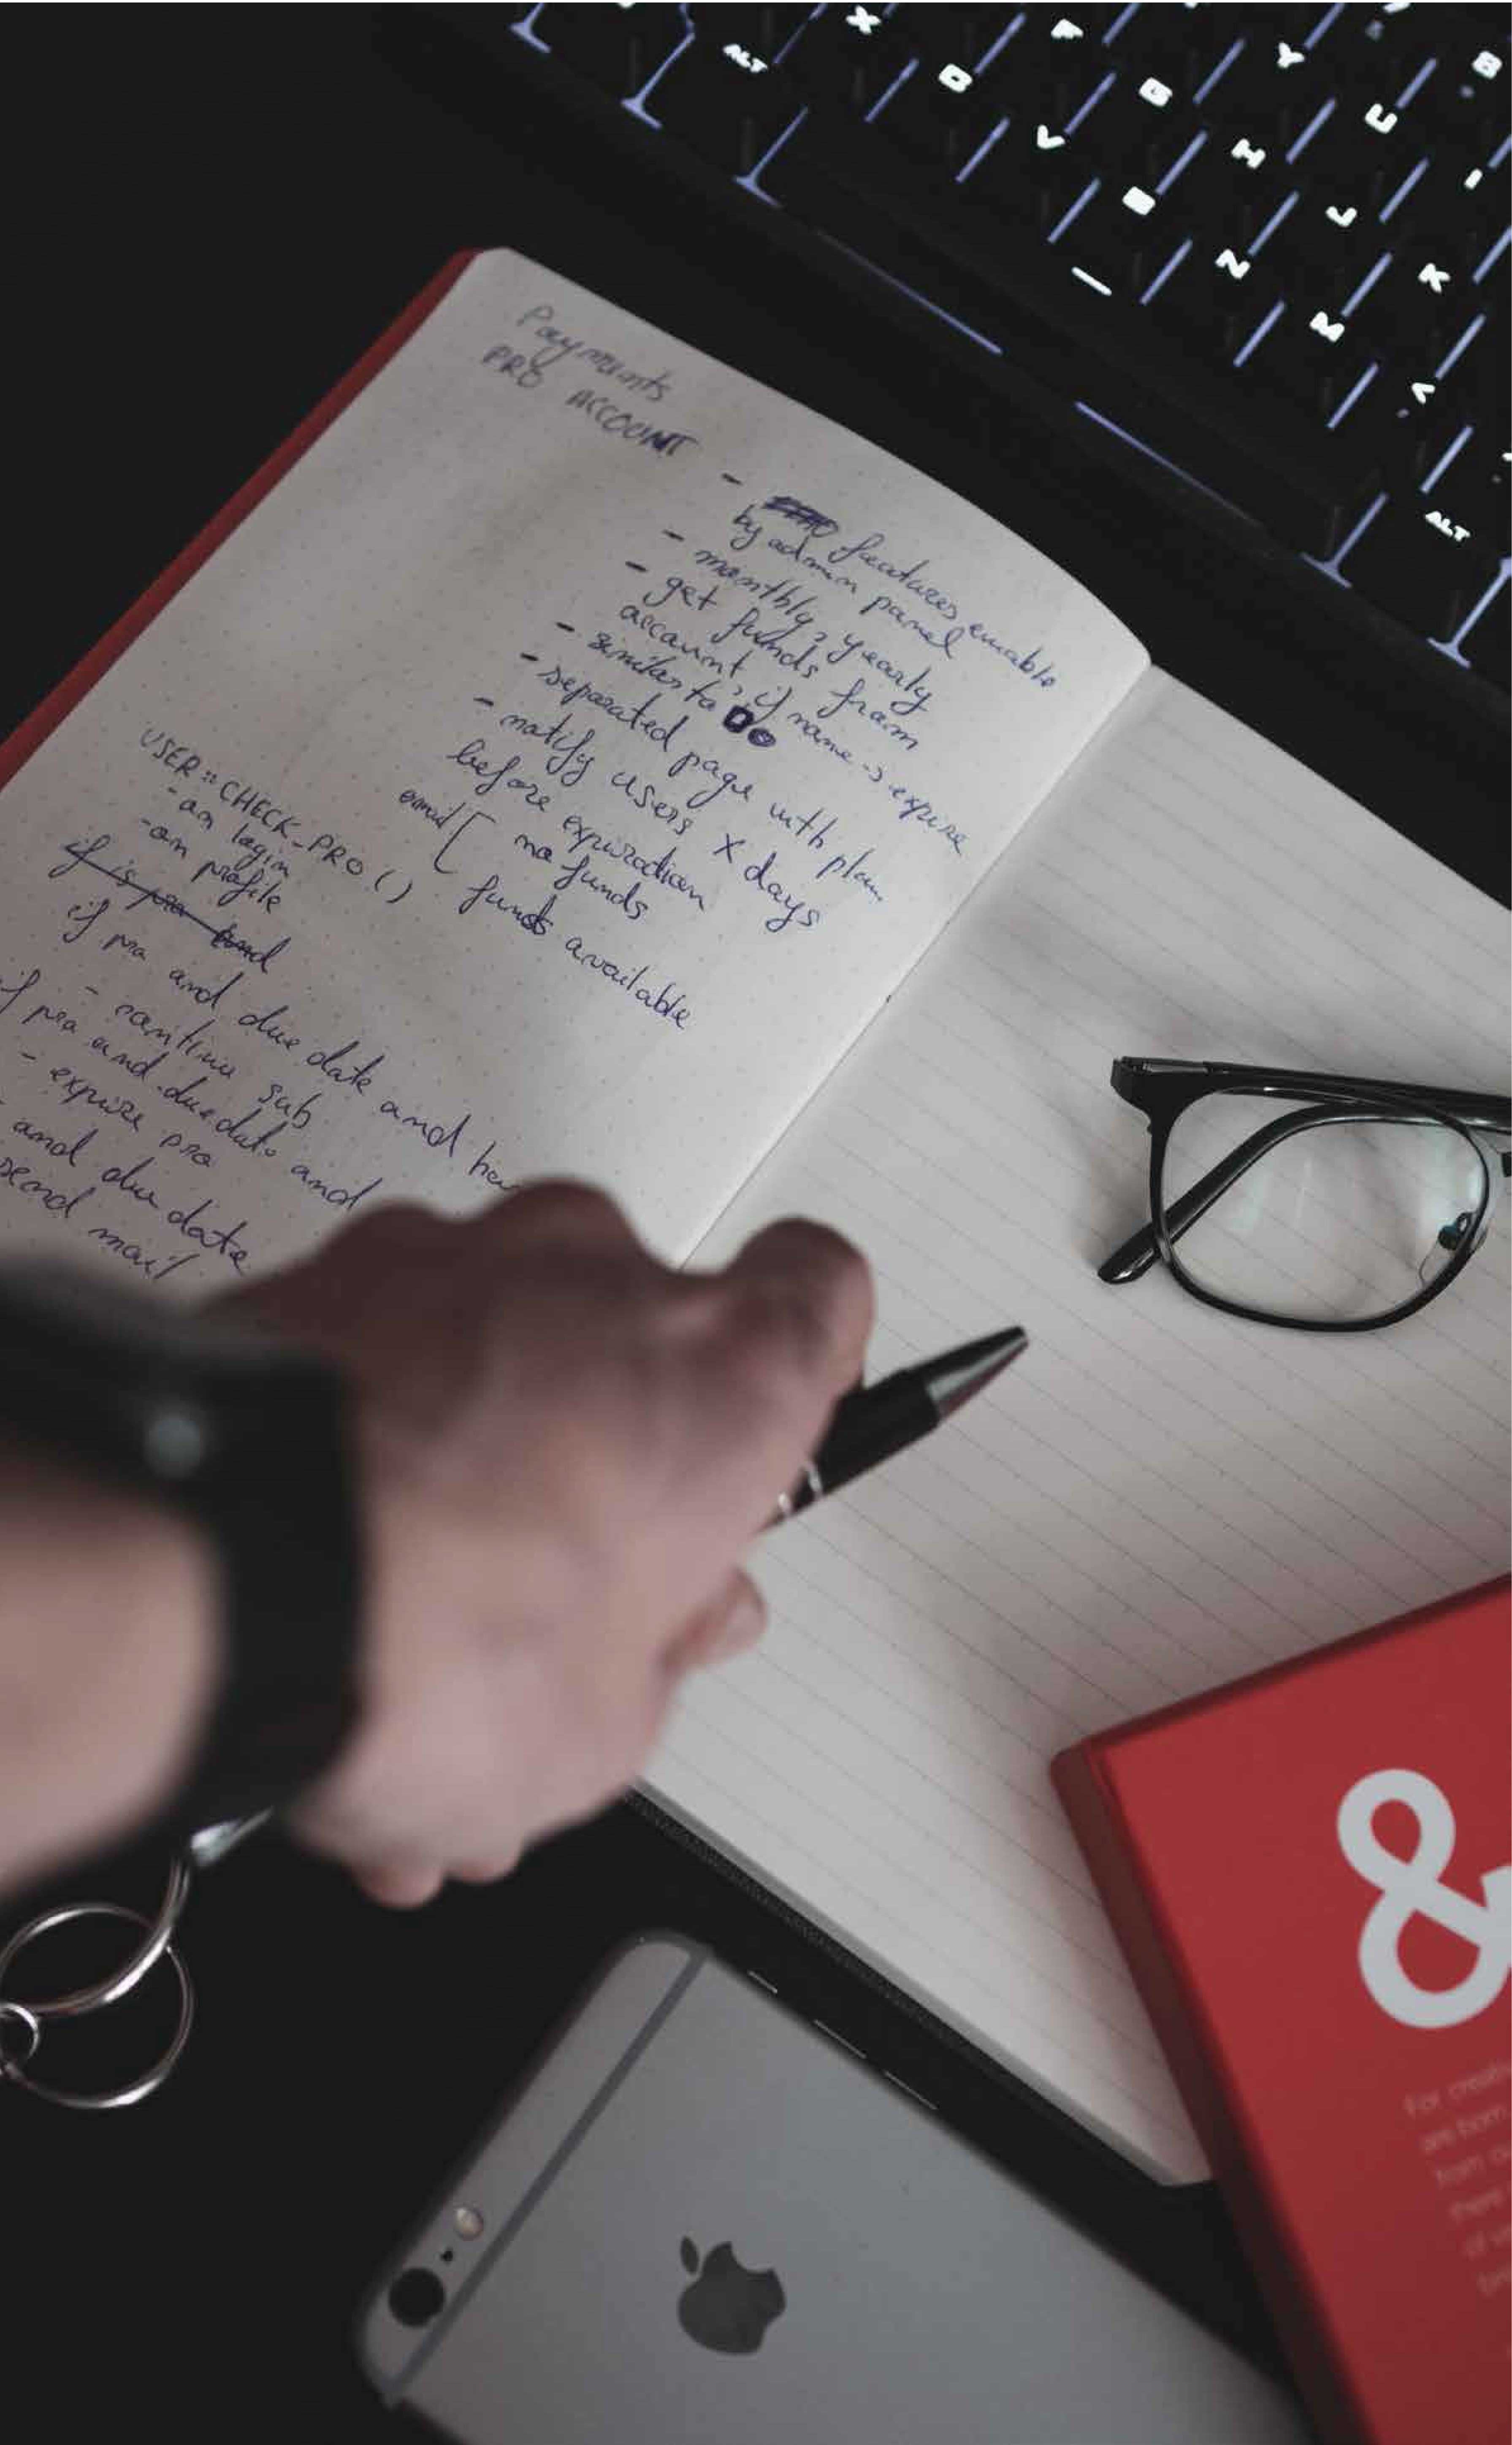 Payments
PRO ACCOUNT
- features enable
by admin panel
- monthly, yearly
- get funds from
account, if none -> expire
- similar to DO
- separated page with plan
- notify users X days
before expiration
email [ no funds
funds available
USER::CHECK_PRO()
- on login
- on profile
if is pro and
if pro and due date and
- continue sub
if pro and due date and
- expire pro
and due date
send mail
ALT
X
F
Y
8
D
G
U
V
H
J
N
K
M
ALT
&
For
are born
from